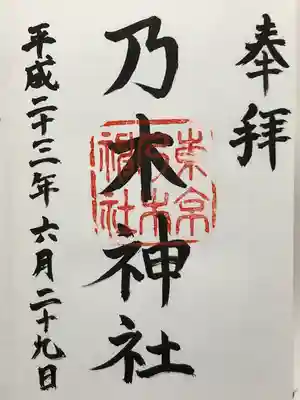 奉拝
乃木神社
東京乃木神社
平成二十三年六月二十九日